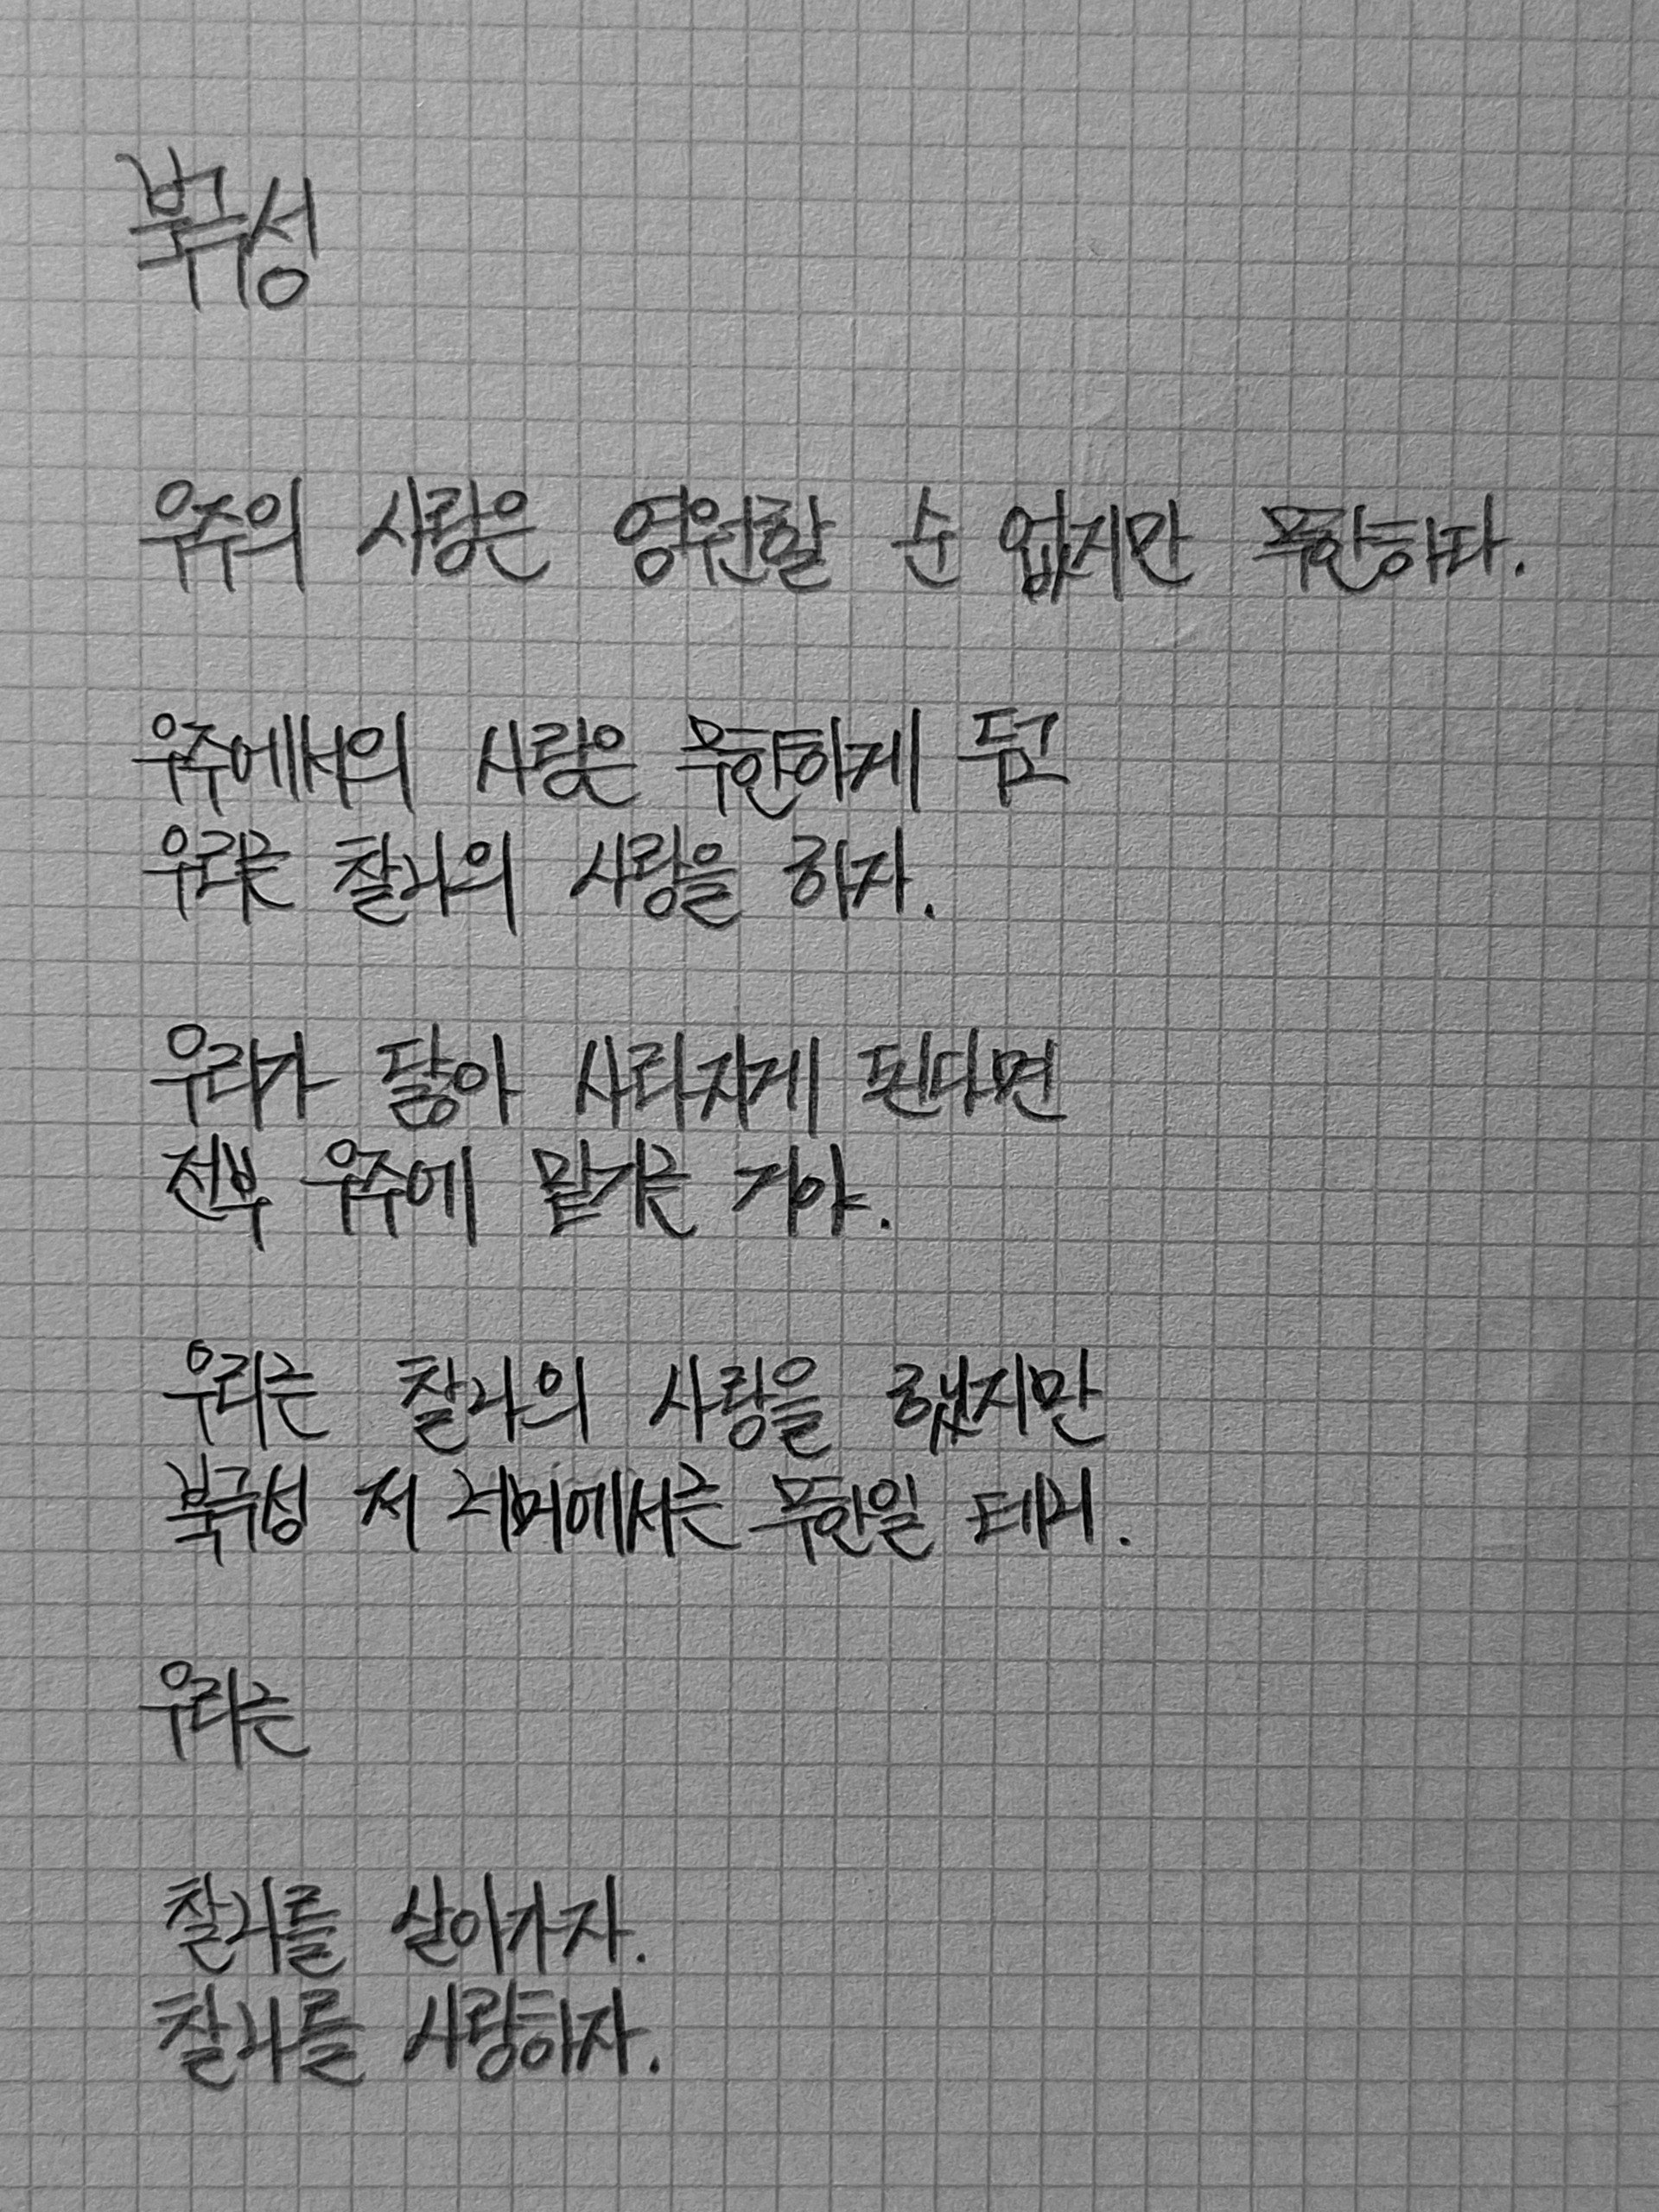 북극성
우주의 사랑은 영원할 순 없지만 무한하다.
우주에서의 사랑은 무한하게 두고
우리는 찰나의 사랑을 하자.
우리가 닳아 사라지게 된다면
전부 우주에 맡기는 거야.
우리는 찰나의 사랑을 했지만
북극성 저 너머에서는 무한일 테니.
우리는
찰나를 살아가자.
찰나를 사랑하자.